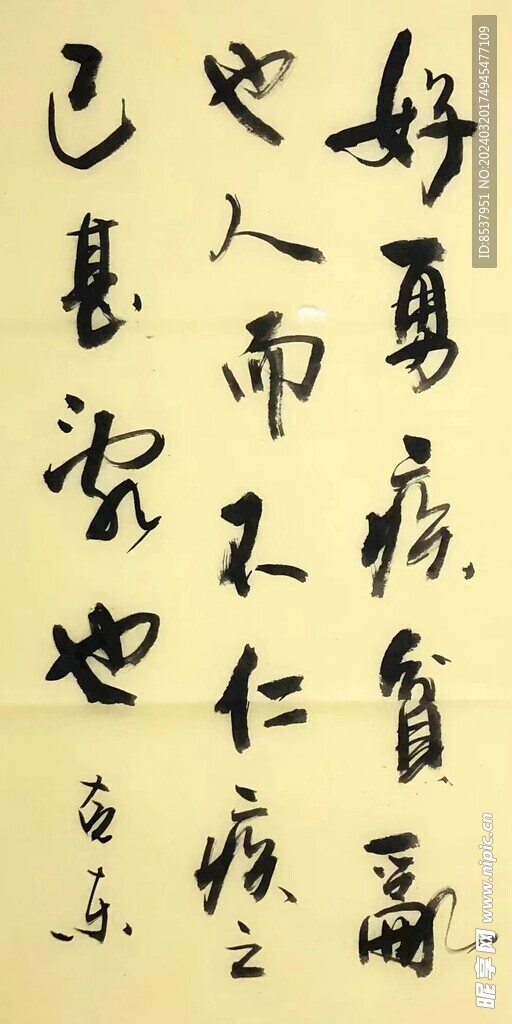 好勇疾貧亂
也人而不仁疾之
已甚亂也
克东
ID:8537951 NO:20240320174945477109
昵享网 www.nipic.cn